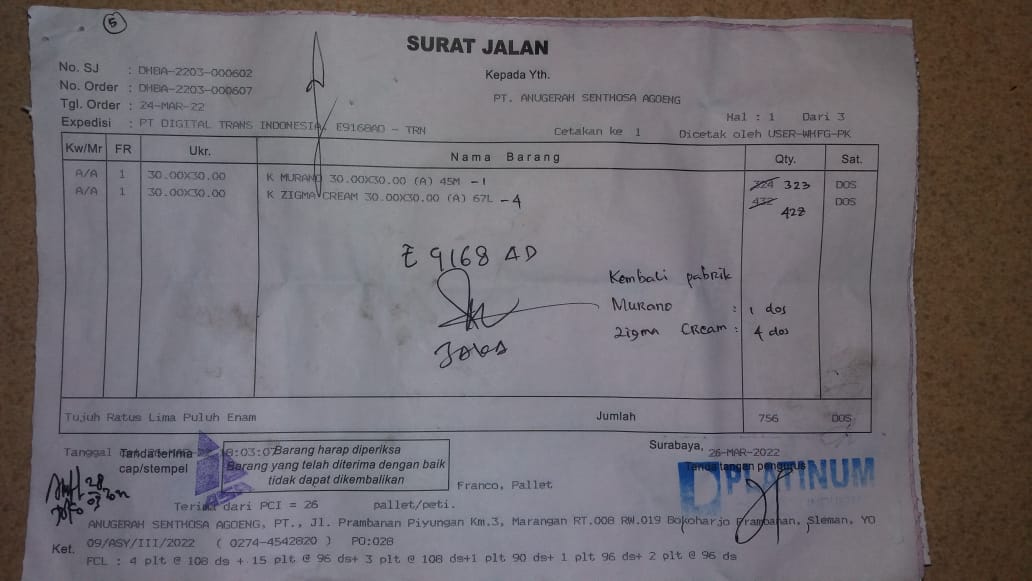 5
SURAT JALAN
No. SJ : DHBA-2203-000602
Kepada Yth.
No. Order : DHBA-2203-000607
PT. ANUGERAH SENTHOSA AGOENG
Tgl. Order : 24-MAR-22
Hal : 1 Dari 3
Expedisi : PT DIGITAL TRANS INDONESIA, E9168AD - TRN
Cetakan ke 1 Dicetak oleh USER-WHFG-PK
Kw/Mr FR Ukr. Nama Barang Qty. Sat.
A/A 1 30.00X30.00 K MURANO 30.00X30.00 (A) 45M -1 324 323 DOS
A/A 1 30.00X30.00 K ZIGMA CREAM 30.00X30.00 (A) 67L -4 432 428 DOS
E 9168 AD
Kembali pabrik
Murano : 1 dos
Zigma Cream : 4 dos
Tujuh Ratus Lima Puluh Enam Jumlah 756 DOS
Tanggal 18:03:07
Tanda terima
cap/stempel
Barang harap diperiksa
Barang yang telah diterima dengan baik
tidak dapat dikembalikan
Surabaya, 26-MAR-2022
Tanda tangan pengurus
PLATINUM
Franco, Pallet
Terima dari PCI = 26 pallet/peti.
ANUGERAH SENTHOSA AGOENG, PT., Jl. Prambanan Piyungan Km.3, Marangan RT.008 RW.019 Bokoharjo Prambanan, Sleman, YO
Ket. 09/ASY/III/2022 ( 0274-4542820 ) PO:028
FCL : 4 plt @ 108 ds + 15 plt @ 96 ds+ 3 plt @ 108 ds+1 plt 90 ds+ 1 plt 96 ds+ 2 plt @ 96 ds